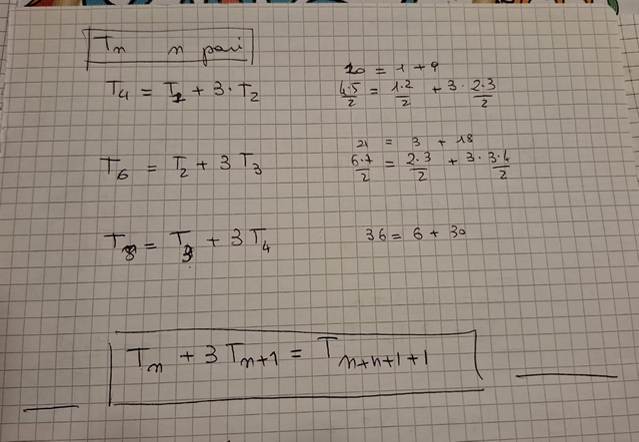 Tn n pari
T4 = T1 + 3·T2
10 = 1 + 9
4·5/2 = 1·2/2 + 3·2·3/2
T6 = T2 + 3T3
21 = 3 + 18
6·7/2 = 2·3/2 + 3·3·4/2
T8 = T3 + 3T4
36 = 6 + 30
Tn + 3Tn+1 = Tn+n+1+1